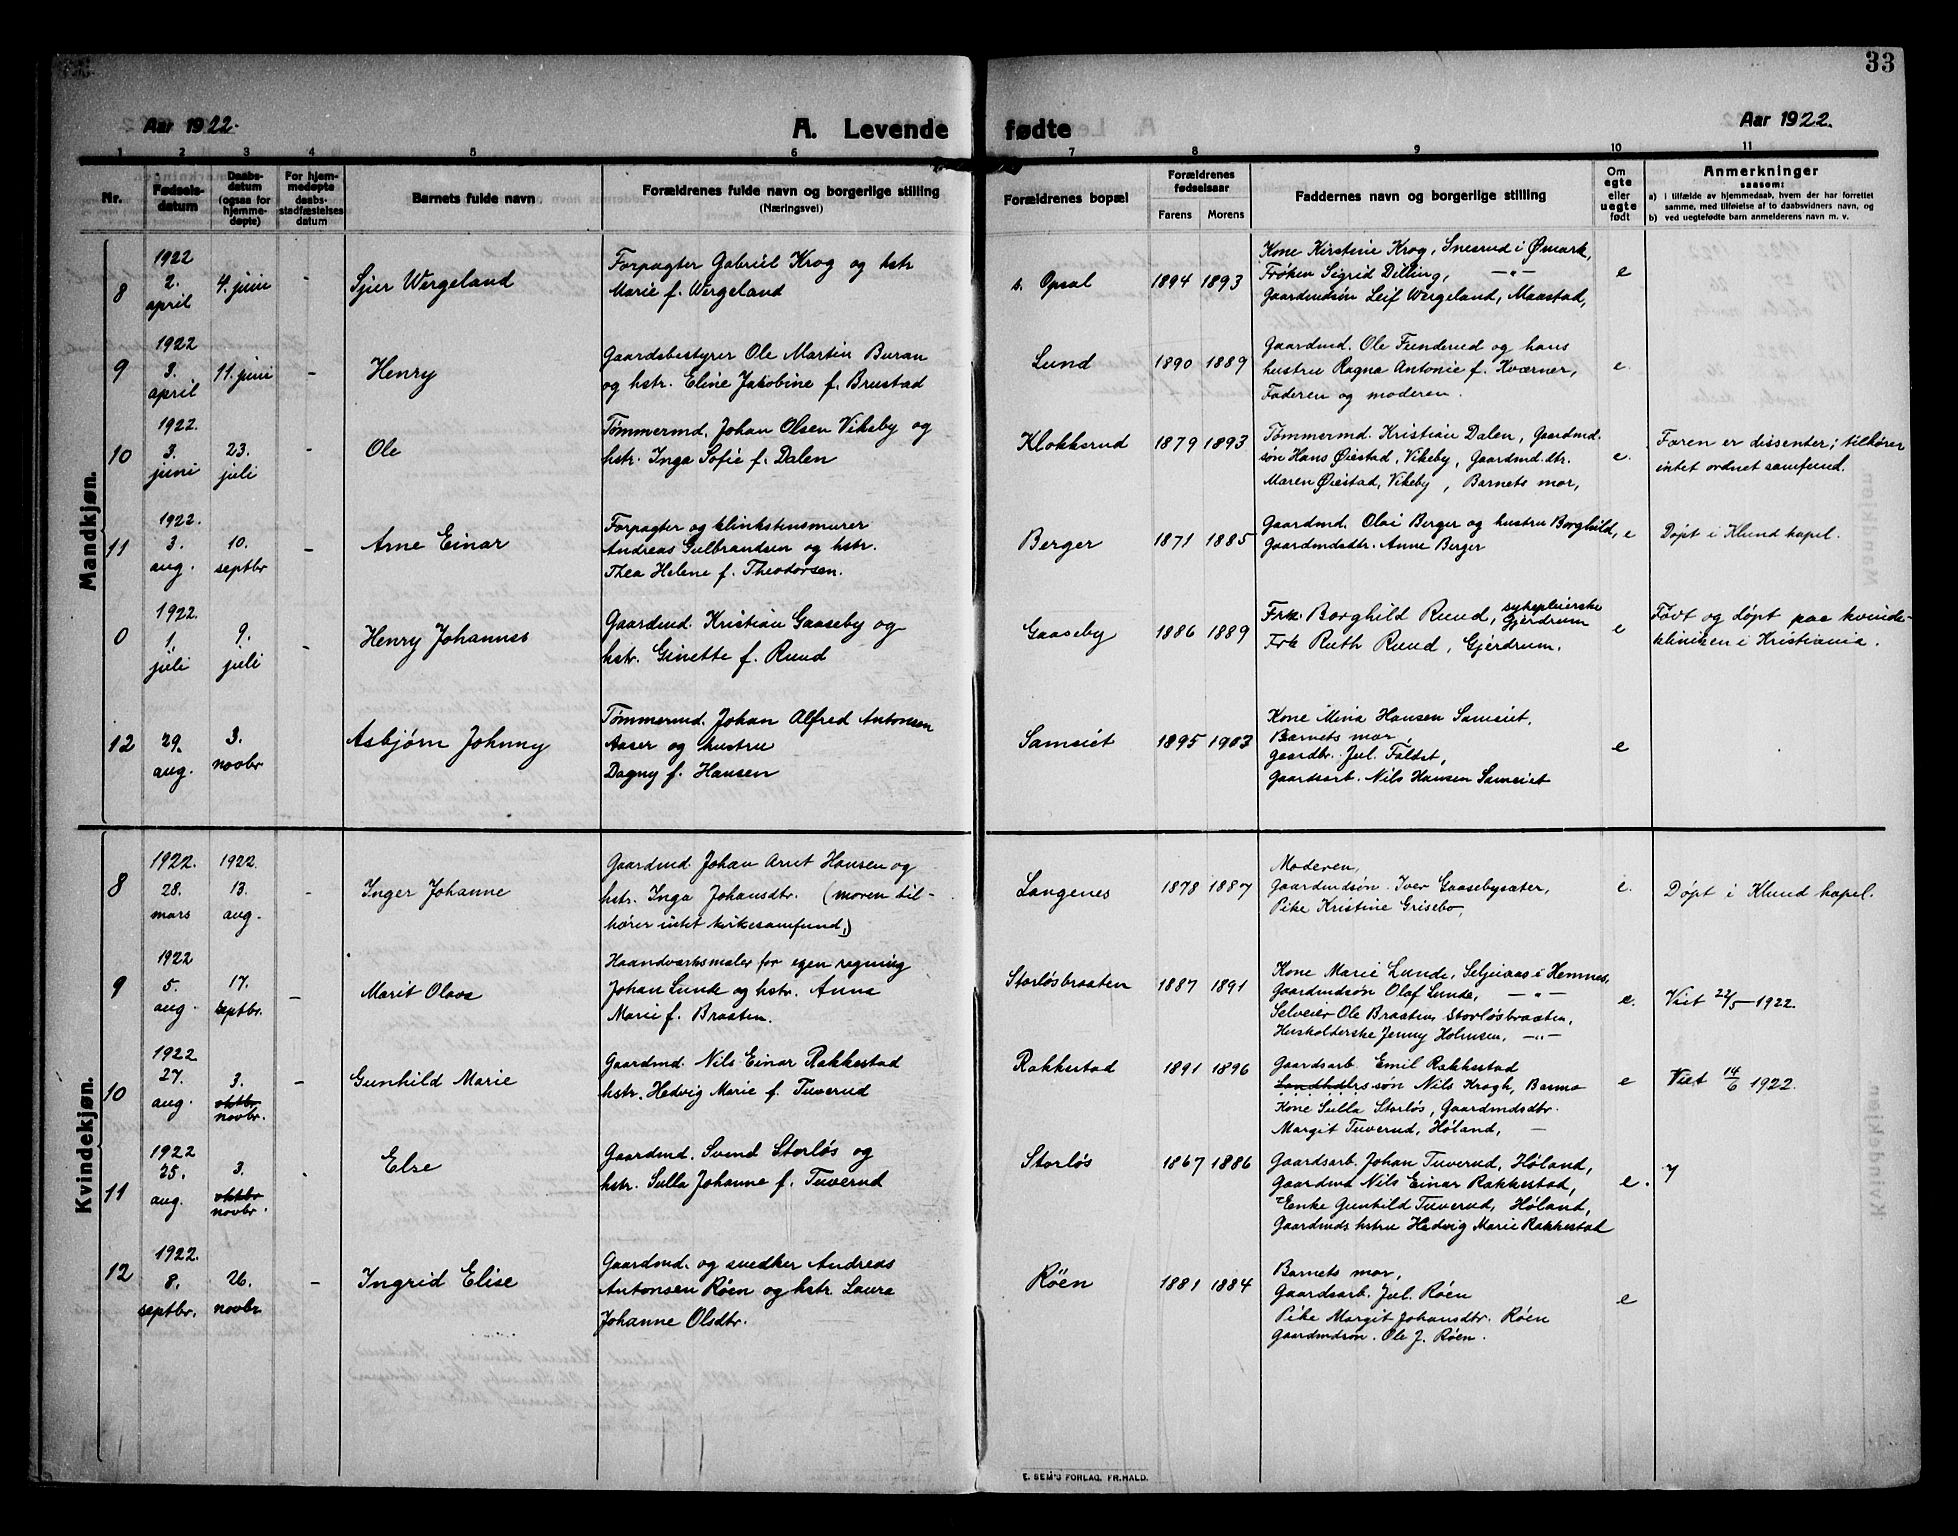 33
Aar 1922.
A. Levende fødte
Aar 1922.
1 2 3 4 5 6 7 8 9 10 11
Nr.
Fødselsdatum
Daabsdatum (ogsaa for hjemmedøpte)
For hjemmedøpte daabsstadfæstelses datum
Barnets fulde navn
Forældrenes fulde navn og borgerlige stilling
(Næringsvei)
Forældrenes bopæl
Forældrenes fødselsaar
Farens Morens
Faddernes navn og borgerlige stilling
Om egte eller uegte født
Anmerkninger
saasom:
a) i tilfælde av hjemmedaab, hvem der har forrettet
samme, med tilføielse av to daabsvidners navn, og
b) ved uegtefødte barn anmelderens navn m. v.
Mandkjøn.
8
1922
2.
april
4. juni
-
Sjur Wergeland
Forpagter Gabriel Krog og hstr
Marie f. Wergeland
s. Opsal
1894 1893
Kone Kirstine Krog, Snesrud i Ømark,
Frøken Sigrid Dilling, —"—
Gaardmdsøn Leif Wergeland, Maastad,
e
9
1922
3.
april
11. juni
-
Henry
Gaardsbestyrer Ole Martin Buran
og hstr. Eline Jakobine f. Brustad
Lund
1890 1889
Gaardmd. Ole Funderud og hans
hustru Ragna Antonie f. Kværner,
Faderen og moderen.
e.
10
1922.
3.
juni
23.
juli
-
Ole
Tømmermd. Johan Olsen Vikeby og
hstr. Inga Sofie f. Dalen
Klokksrud
1879 1893
Tømmermd. Kristian Dalen, Gaardmd.
søn Hans Øiestad, Vikeby, Gaardmd.dtr.
Maren Øiestad, Vikeby, Barnets mor,
e.
Faren er dissenter; tilhører
intet ordnet samfund.
11
1922.
3.
aug.
10.
septbr
-
Arne Einar
Forpagter og klinkstensmurer
Andreas Gulbrandsen og hstr.
Thea Helene f. Theodorsen.
Berger
1871 1885
Gaardmd. Olai Berger og hustru Borghild,
Gaardmdsdtr. Anne Berger
e
Døpt i Klund kapel.
0
1922.
1.
juli
9.
juli
-
Henry Johannes
Gaardmd. Kristian Gaaseby og
hstr. Ginette f. Ruud
Gaaseby
1886 1889
Frk. Borghild Ruud, sykepleierske
Gjerdrum
Frk Ruth Ruud, Gjerdrum.
e
Født og døpt paa kvinde-
kliniken i Kristiania.
12
29.
aug.
3.
novbr
Asbjørn Johnny
Tømmermd. Johan Alfred Antonsen
Aaser og hustru
Dagny f. Hansen
Samsiet
1895 1903
Kone Mina Hansen Samsiet,
Barnets mor,
Gaardbr. Jul. Faldet,
Gaardsarb. Nils Hansen Samsiet
e
Kvindekjøn.
8
1922.
28.
mars
1922.
13.
aug.
-
Inger Johanne
Gaardmd. Johan Arnt Hansen og
hstr. Inga Johansdtr. (moren til-
hører intet kirkesamfund.)
Langenes
1878 1887
Moderen,
Gaardmdsøn. Iver Gaasebysæter,
Pike Kristine Grisebo,
e.
Døpt i Klund kapel.
9
1922
5.
aug.
17.
septbr.
-
Marit Olava
Haandverksmaler for egen regning
Johan Lunde og hstr. Anna
Marie f. Braaten.
Storløsbraaten
1887 1891
Kone Marie Lunde, Seljeaas i Hemnes,
Gaardmdsøn Olaf Lunde, —"—
Selveier Ole Braaten Storløsbraaten,
Husholderske Jenny Holmsen, —"—
e.
Viet 22/5-1922.
10
1922
27.
aug.
3.
oktbr
novbr.
-
Gunhild Marie
Gaardmd. Nils Einar Rakkestad
hstr. Hedvig Marie f. Tuverud
Rakkestad
1891 1896
Gaardsarb. Emil Rakkestad
Landhdlrs søn Nils Krogh, Basmo
Kone Sulla Storløs, Gaardmdsdtr.
Margit Tuverud, Høland, —
e
Viet 14/6 1922.
11
1922
25.
aug.
3.
oktbr
novbr.
-
Else
Gaardmd. Svend Storløs og
hstr. Sulla Johanne f. Tuverud
Storløs
1867 1886
Gaardsarb. Johan Tuverud, Høland,
Gaardmd Nils Einar Rakkestad,
Enke Gunhild Tuverud, Høland,
Gaardmds hstru Hedvig Marie Rakkestad
e.
7
12
1922.
8.
septbr.
26.
novbr.
-
Ingrid Elise
Gaardmd. og snedker Andreas
Antonsen Røen og hstr. Laura
Johanne Olsdtr.
Røen
1881 1884
Barnets mor,
Gaardsarb. Jul. Røen
Pike Margit Johansdtr. Røen
Gaardmdsøn. Ole J. Røen.
e
E. SEM'S FORLAG, FR.HALD.